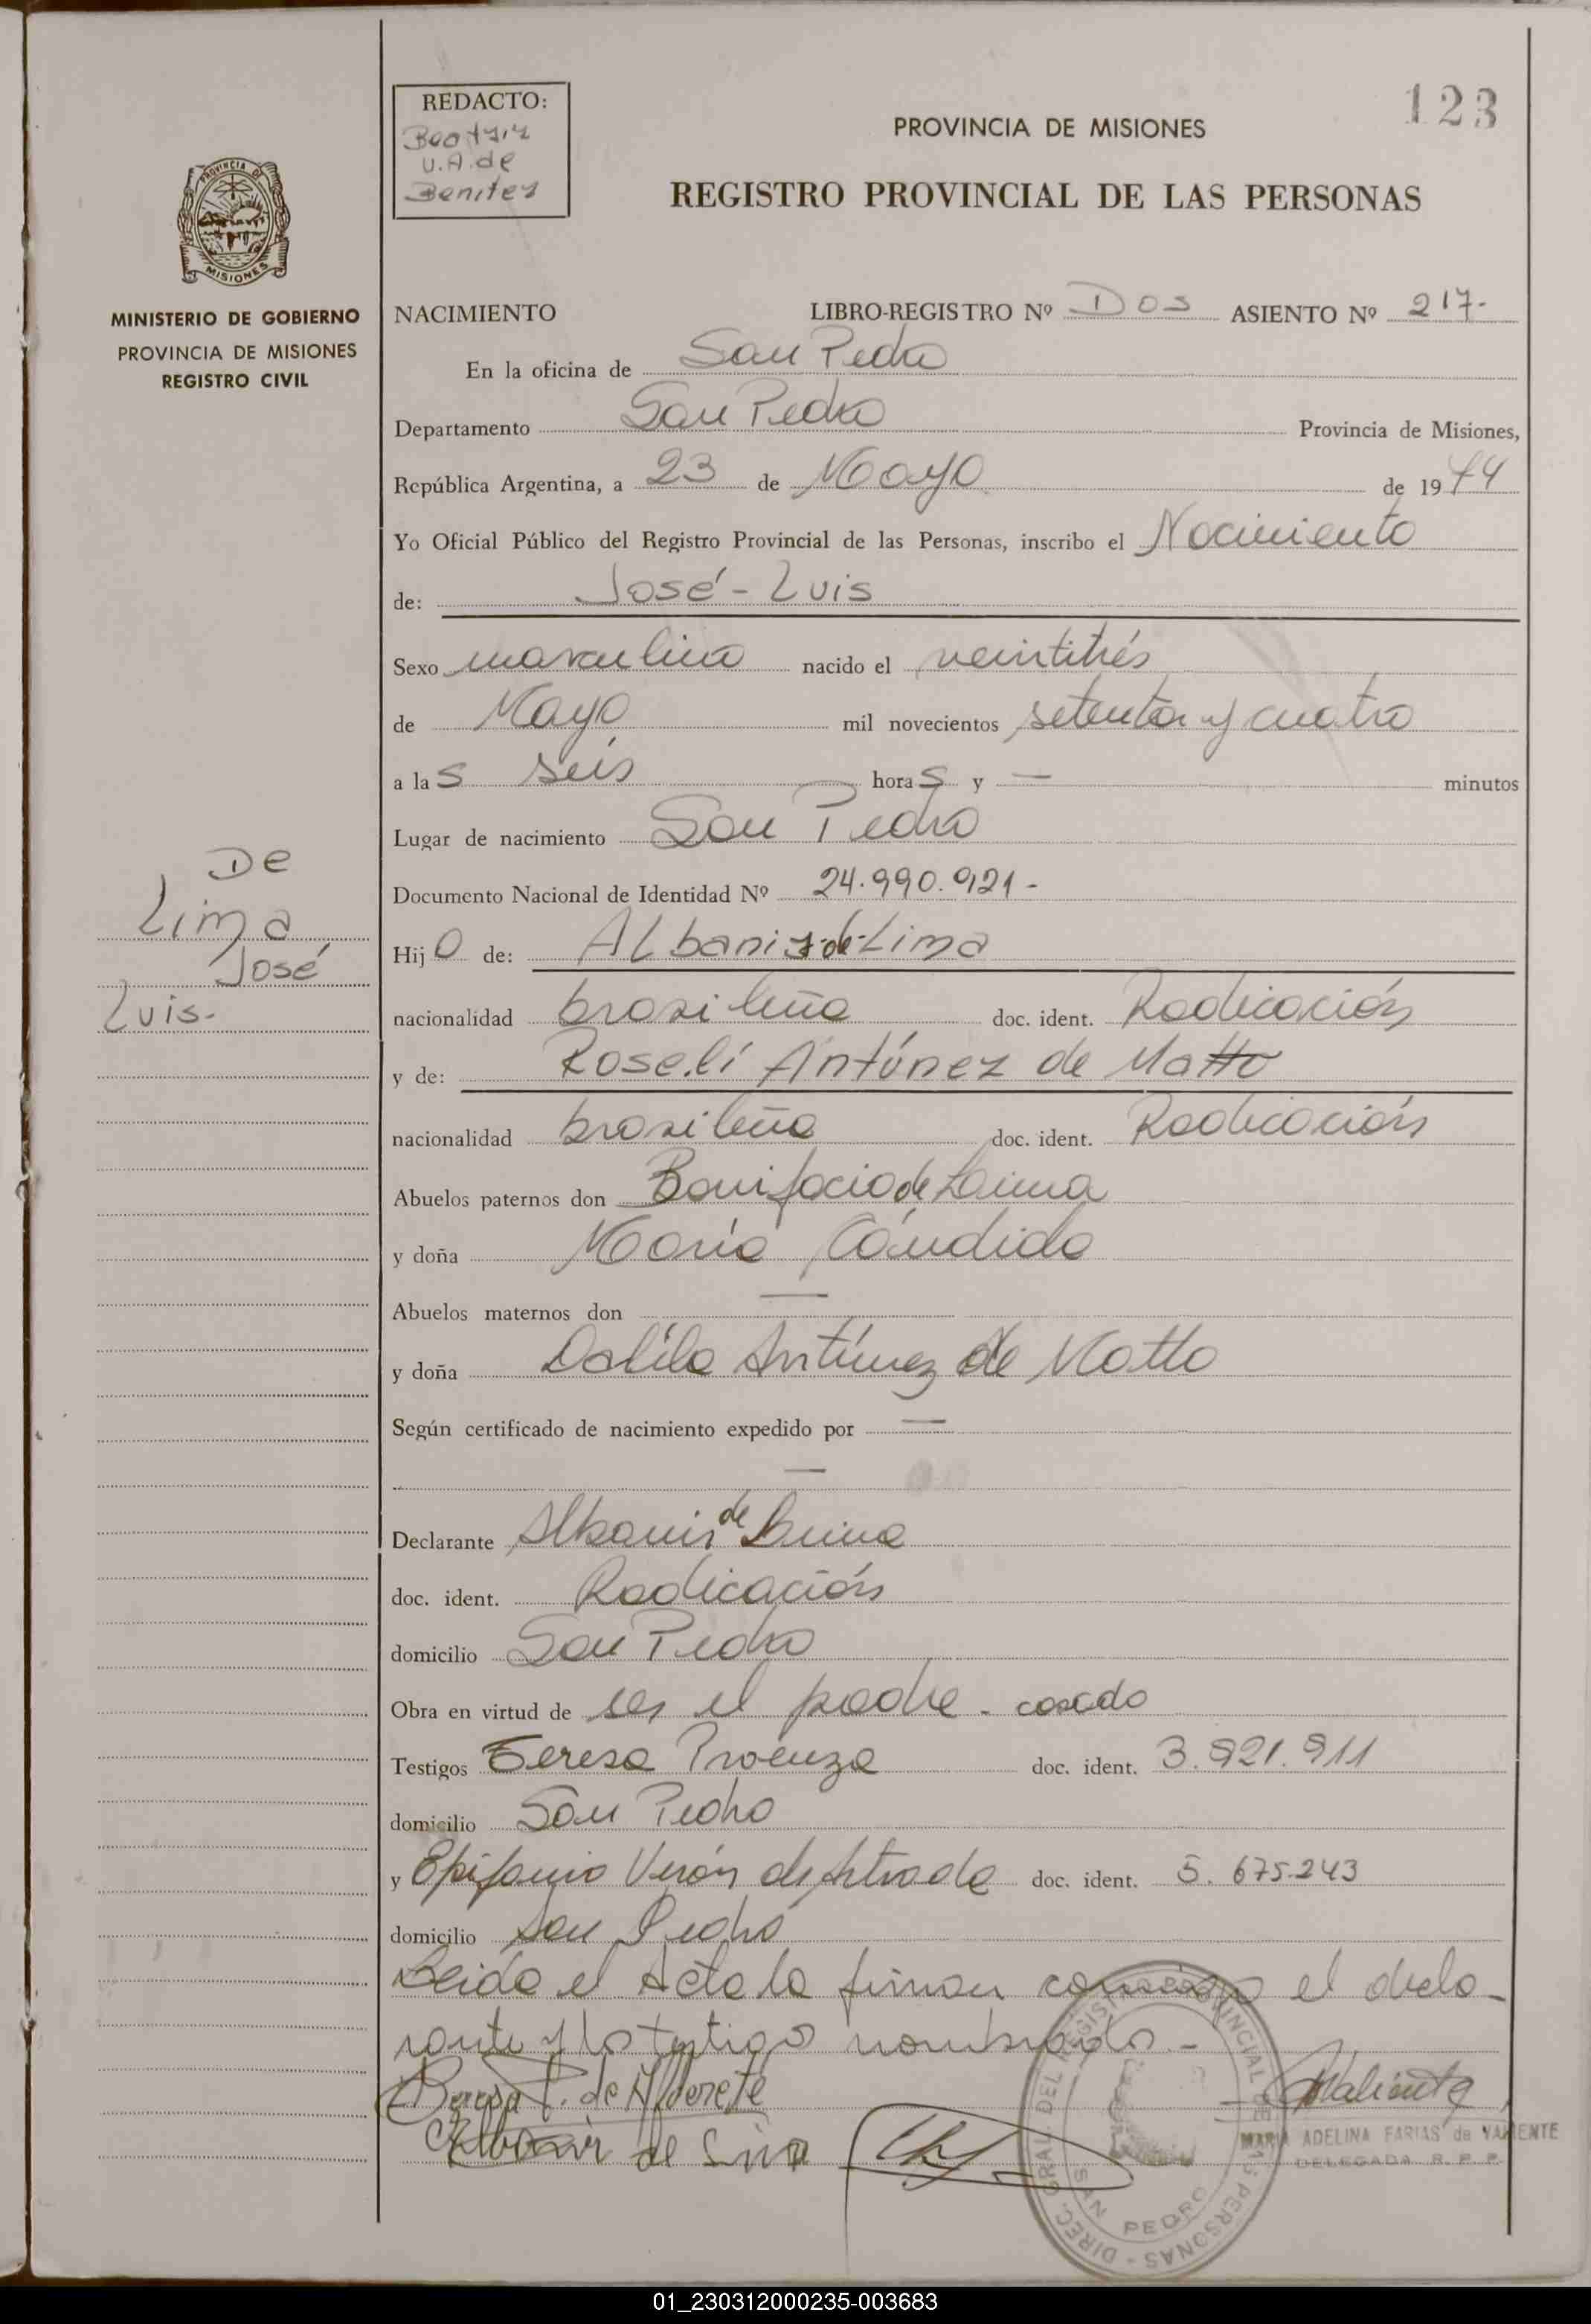 123
REDACTO:
Beatriz
U.A. de
Benitez
PROVINCIA DE MISIONES
REGISTRO PROVINCIAL DE LAS PERSONAS
PROVINCIA DE
MISIONES
MINISTERIO DE GOBIERNO
PROVINCIA DE MISIONES
REGISTRO CIVIL
NACIMIENTO LIBRO-REGISTRO Nº Dos ASIENTO Nº 217-
En la oficina de San Pedro
Departamento San Pedro Provincia de Misiones,
República Argentina, a 23 de Mayo de 1974
Yo Oficial Público del Registro Provincial de las Personas, inscribo el Nacimiento
de: José - Luis
Sexo masculino nacido el veintitrés
de Mayo mil novecientos setenta y cuatro
a las seis horas y — minutos
Lugar de nacimiento San Pedro
Documento Nacional de Identidad Nº 24.990.921-
De
Lima
José
Luis.
Hijo de: Albaniz-de-Lima
nacionalidad brasileña doc. ident. Radicación
y de: Roselí Antúnez de Matto
nacionalidad brasileña doc. ident. Radicación
Abuelos paternos don Bonifacio de Laima
y doña María Cándida
Abuelos maternos don —
y doña Dalila Antúnez de Matto
Según certificado de nacimiento expedido por —
—
Declarante Albanis de Lima
doc. ident. Radicación
domicilio San Pedro
Obra en virtud de ser el padre - casado
Testigos Teresa Proenza doc. ident. 3.921.911
domicilio San Pedro
y Epifanio Verón de Antrada doc. ident. 5.675.243
domicilio San Pedro
Leída el Acta la firman conmigo el decla-
rante y los testigos nombrados.-
P. de Alderete
de Lima
Valiente
MARIA ADELINA FARIAS de VALIENTE
DELEGADA R. P. P.
DIREC. GRAL. DEL REGISTRO PROVINCIAL DE LAS PERSONAS -
SAN PEDRO
01_230312000235-003683